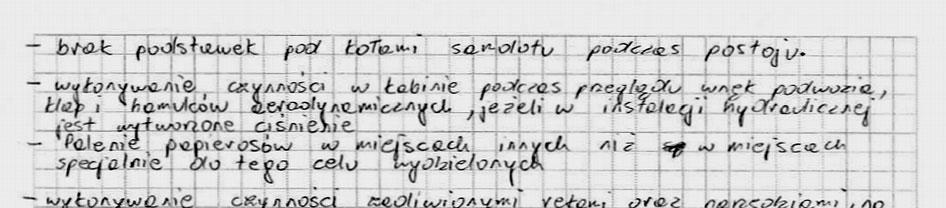 - brak podstawek pod kołami samolotu podczas postoju.
- wykonywanie czynności w kabinie podczas przeglądu wnęk podwozia,
klap i hamulców aerodynamicznych, jeżeli w instalacji hydraulicznej
jest wytworzone ciśnienie
- Palenie papierosów w miejscach innych niż w miejscach
specjalnie do tego celu wydzielonych
- wykonywanie czynności zaoliwionymi rękami oraz narzędziami, no